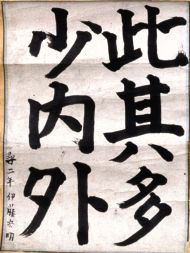 此其多
少内外
尋二年伊藤